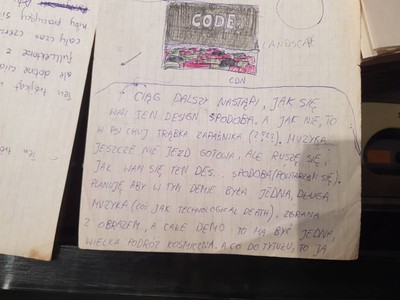 CODE.
LANDSCAPE
CDN
CIĄG DALSZY NASTĄPI, JAK SIĘ
WAM TEN DESIGN SPODOBA, A JAK NIE, TO
W PSI CHUJ TRĄBKA ZAPAŚNIKA (2 ). MUZYKA
JESZCZE NIE JEZD GOTOWA, ALE RUSZĘ SIĘ,
JAK WAM SIĘ TEN DES... SPODOBA (POWTARZAM SIĘ).
PLANUJĘ ABY W TYM DEMIE BYŁA JEDNA, DŁUGA
MUZYKA (COŚ JAK TECHNOLOGICAL DEATH), ZGRANA
Z OBRAZEM, A CAŁE DEMO TO MA BYĆ JEDNA,
WIELKA PODRÓŻ KOSMICZNA. A CO DO TYTUŁU, TO JA